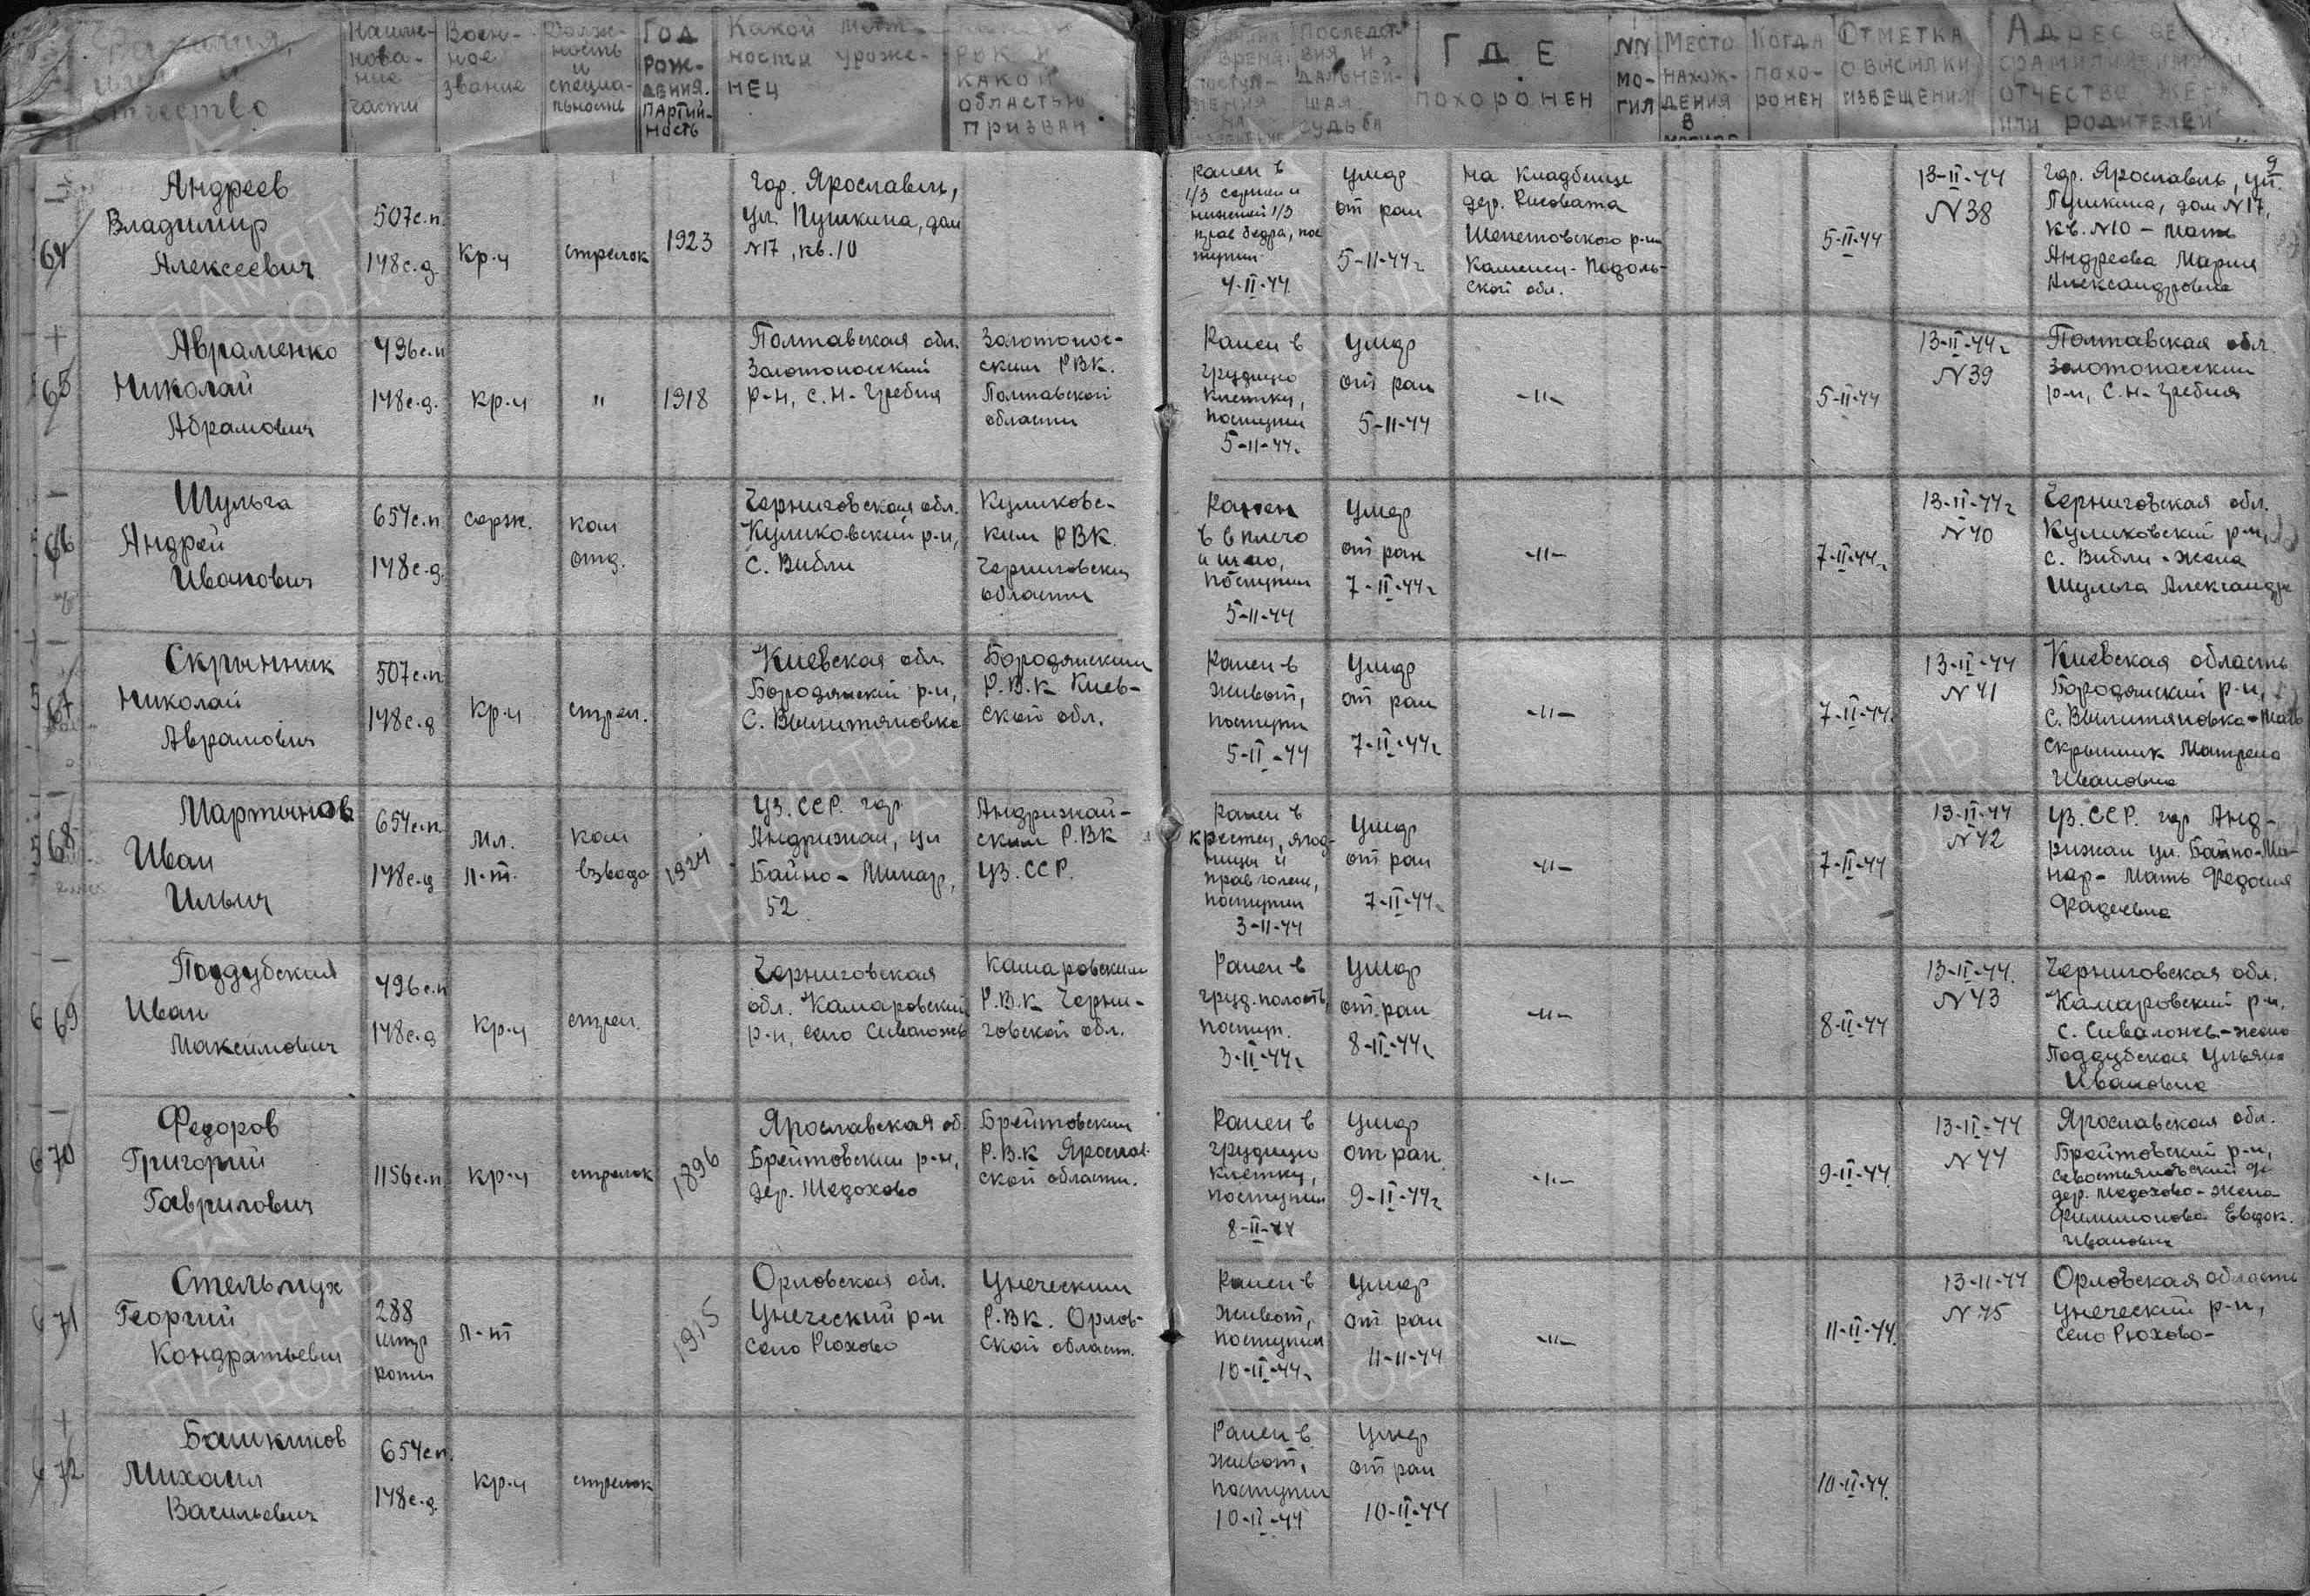 Фамилия, имя и отчество
Наиме-нова-ние части
Воен-ное звание
Долж-ность и специа-льность
Год рож-дения. партий-ность
Какой мест-ности уроже-нец
РВК и какой областью призван
Последст-вия и дальней-шая судьба
Где похоронен
NN мо-гил
Место нахож-дения в
Когда похо-ронен
Отметка о высылки извещения
Адрес
отчество жены или родителей
9
64
Андреев
Владимир
Алексеевич
507с.п.
148с.д.
Кр-ц
стрелок
1923
гор. Ярославль,
ул. Пушкина, дом
N17, кв. 10
Ранен в
1/3
нижней 1/3
прав бедра, пос
тупил
4-II-44
умер
от ран
5-II-44г
на кладбище
дер.
Шепетовского р-на
Каменец-Подоль-
ской обл.
5-II-44
13-II-44
N38
гор. Ярославль, ул.
Пушкина, дом N17,
кв. N10 - мать
Андреева Мария
Александровна
65
Авраменко
Николай
Абрамович
496с.п
148с.д.
кр-ц
"
1918
Полтавская обл.
Золотоноский
р-н, с. Н-Гребля
Золотонос-
ским РВК.
Полтавской
области
Ранен в
грудную
клетку,
поступил
5-II-44г
умер
от ран
5-II-44
-"-
5-II-44
13-II-44г
N39
Полтавская обл.
Золотоноский
р-н, с. Н-Гребля
66
Шульга
Андрей
Иванович
654с.п
148с.д.
серж.
ком
отд.
Черниговская обл.
Куликовский р-н,
с. Вибли
Куликовс-
ким РВК.
Черниговской
области
Ранен
в плечо
и шею,
поступил
5-II-44
умер
от ран
7-II-44г
-"-
7-II-44г
13-II-44г
N40
Черниговская обл.
Куликовский р-н,
с. Вибли - жена
Шульга Александра
67
Скрынник
Николай
Аврамович
507с.п
148с.д
кр-ц
стрел.
Киевская обл
Бородянский р-н,
с.
Бородянским
Р.В.К Киев-
ской обл.
Ранен в
живот,
поступил
5-II-44
умер
от ран
7-II-44г
-"-
7-II-44г
13-II-44
N41
Киевская область
Бородянский р-н,
с. - мать
Скрынник Матрена
Ивановна
68
Мартынов
Иван
Ильич
654с.п
148с.д
мл.
л-т.
ком
взвода
1924
Уз. ССР. гор
Андрижан, ул
Байно-Минар,
52
Андрижан-
ским Р.ВК
Уз. ССР.
Ранен в
крестец, ягод-
ницы и
прав голень,
поступил
3-II-44
умер
от ран
7-II-44г
-"-
7-II-44
13-II-44
N42
Уз. ССР. гор Анд-
рижан ул. Байно-Ми-
нар - мать Федосия
Фадеевна
69
Поддубский
Иван
Максимович
496с.п
148с.д
Кр-ц
стрел.
Черниговская
обл. Камаровский
р-н, село Сиволожь
Камаровским
Р.В.К Черни-
говской обл.
Ранен в
груд. полость,
поступ.
3-II-44г
умер
от ран
8-II-44г
-"-
8-II-44
13-II-44.
N43
Черниговская обл.
Камаровский р-н,
с. Сиволожь - жена
Поддубская Ульяна
Ивановна
70
Федоров
Григорий
Гаврилович
1156с.п
кр-ц
стрелок
1896
Ярославская об.
Брейтовский р-н,
дер. Медохово
Брейтовским
Р.В.К Яросла-
ской области.
Ранен в
грудную
клетку,
поступил
8-II-44
умер
от ран
9-II-44г
-"-
9-II-44
13-II-44
N44
Ярославская обл.
Брейтовский р-н,
дер. Медохово - жена
Филимонова Евдок.
Ивановна
71
Стельмух
Георгий
Кондратьевич
288
штур
роты
Л-т
1915
Орловская обл.
Унечский р-н
село Рюхово
Унеческим
Р.ВК. Орлов-
ской област.
Ранен в
живот,
поступил
10-II-44г
умер
от ран
11-II-44
-"-
11-II-44
13-II-44
N45
Орловская область
Унечский р-н,
село Рюхово -
72
Башкинов
Михаил
Васильевич
654с.п.
148с.д.
кр-ц
стрелок
Ранен в
живот,
поступил
10-II-44
умер
от ран
10-II-44
10-II-44
ПАМЯТЬ НАРОДА